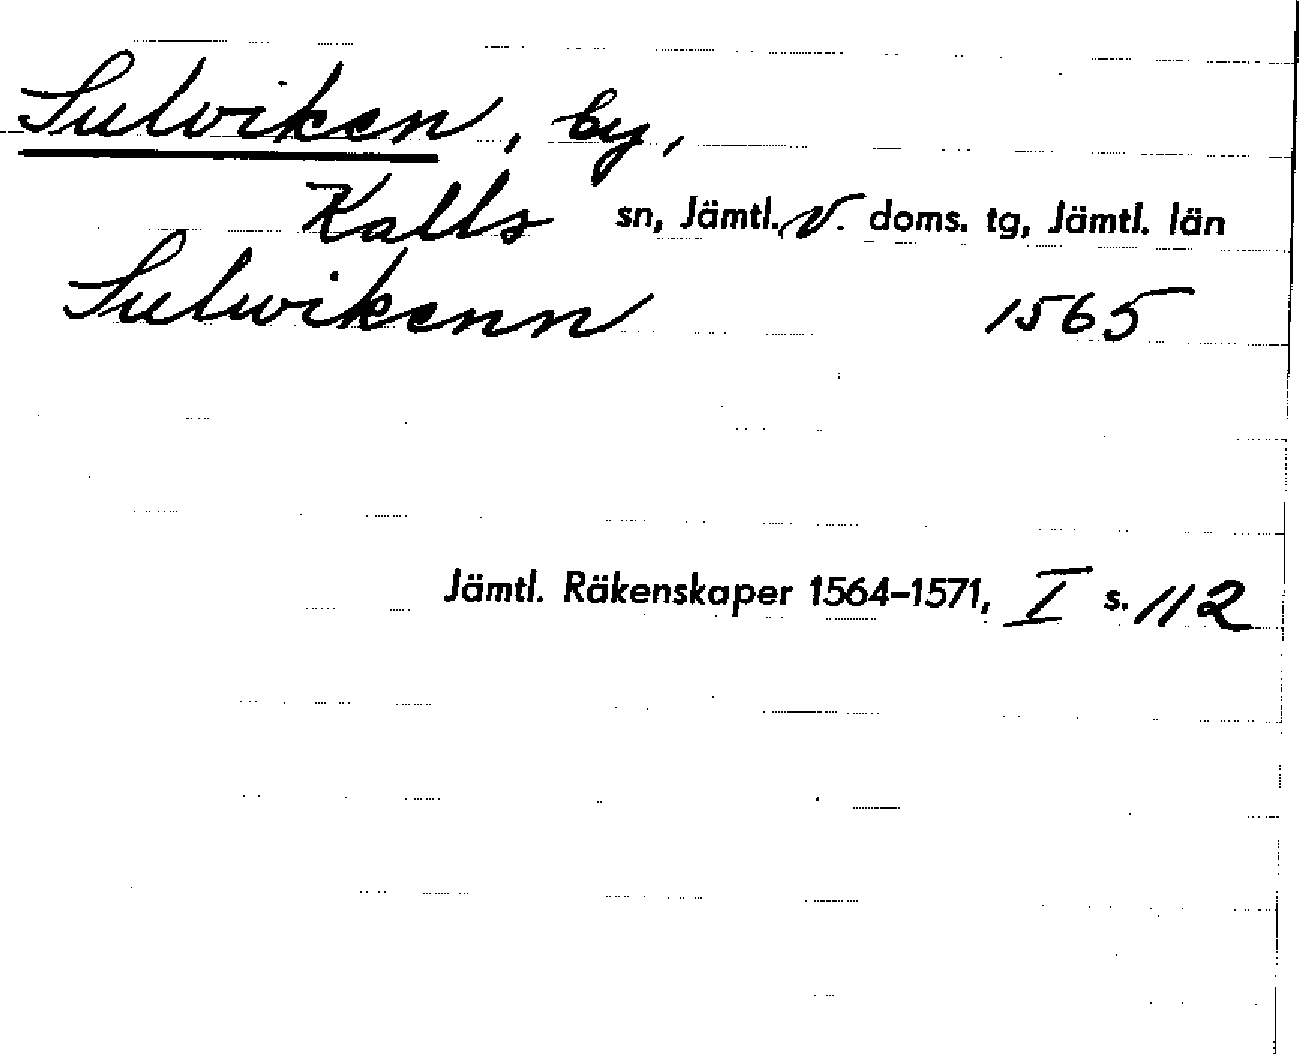 Sulviken, by,
Kalls sn, Jämtl., V. doms. tg, Jämtl. län
Sulwikenn 1565
Jämtl. Räkenskaper 1564–1571, I s. 112